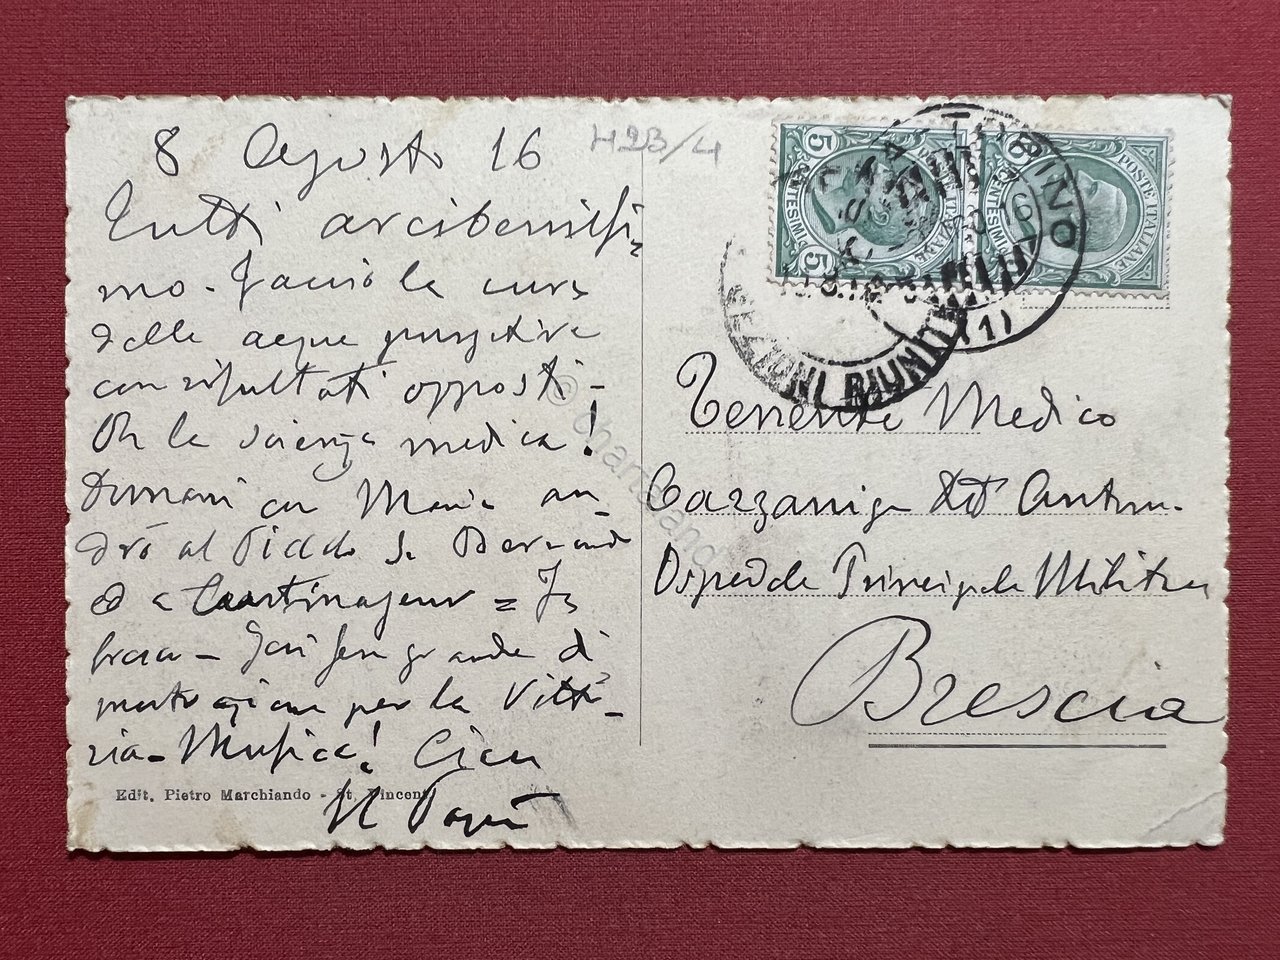 8 Agosto 16
H23/4
Tutti arcibenissi-
mo - Faccio la cura
delle acque purgative
con risultati opposti -
Oh la scienza medica!
Domani con Maria an-
drò al Piccolo S. Bernardo
e a Courtmayeur =
grande di
mostrazione per la Vitto-
ria - Musica! Ciau
Il Papà
Edit. Pietro Marchiando - St. Vincent
POSTE ITALIANE
CENTESIMI
5
5
TORINO
(1)
SEZIONI RIUNITE
Tenente Medico
Cazzaniga Dr Antonio
Ospedale Principale Militare
Brescia
© chartaland